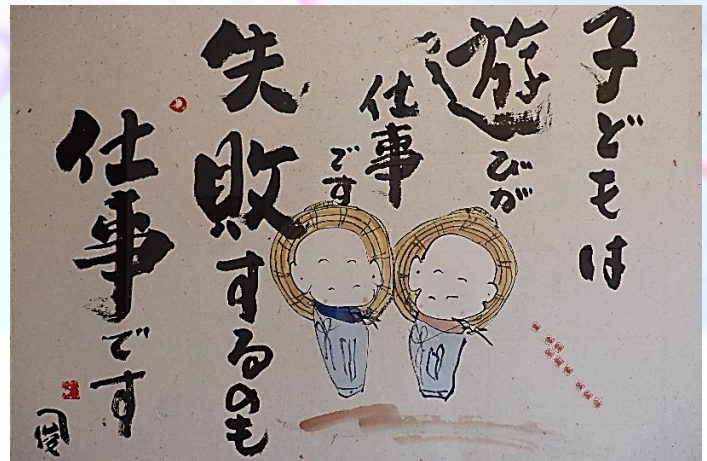 子どもは
遊びが
仕事
です
失敗するのも
仕事です